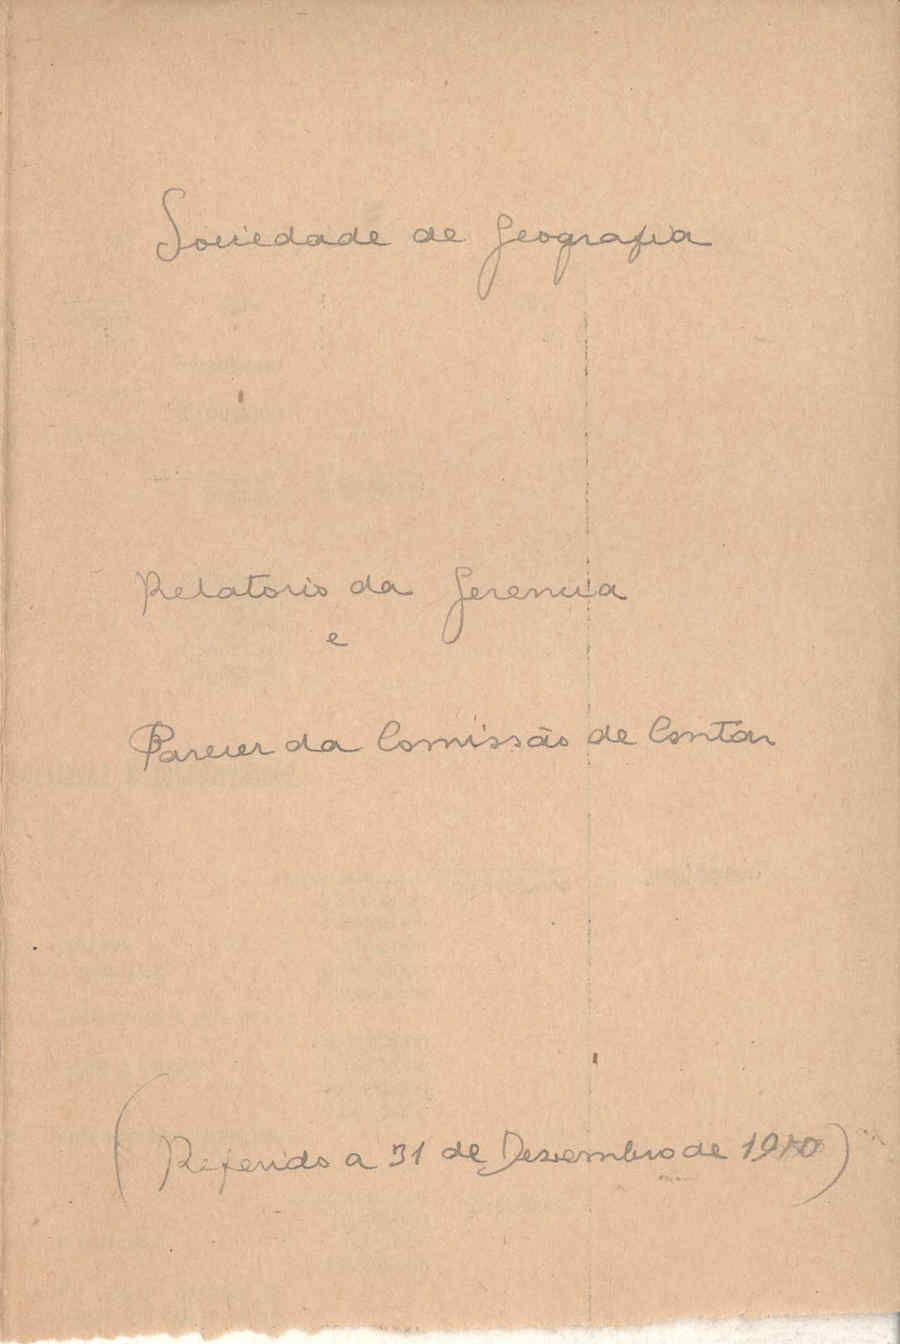 Sociedade de Geografia
Relatorio da Gerencia
e
Parecer da Comissão de Contas
(Referido a 31 de Dezembro de